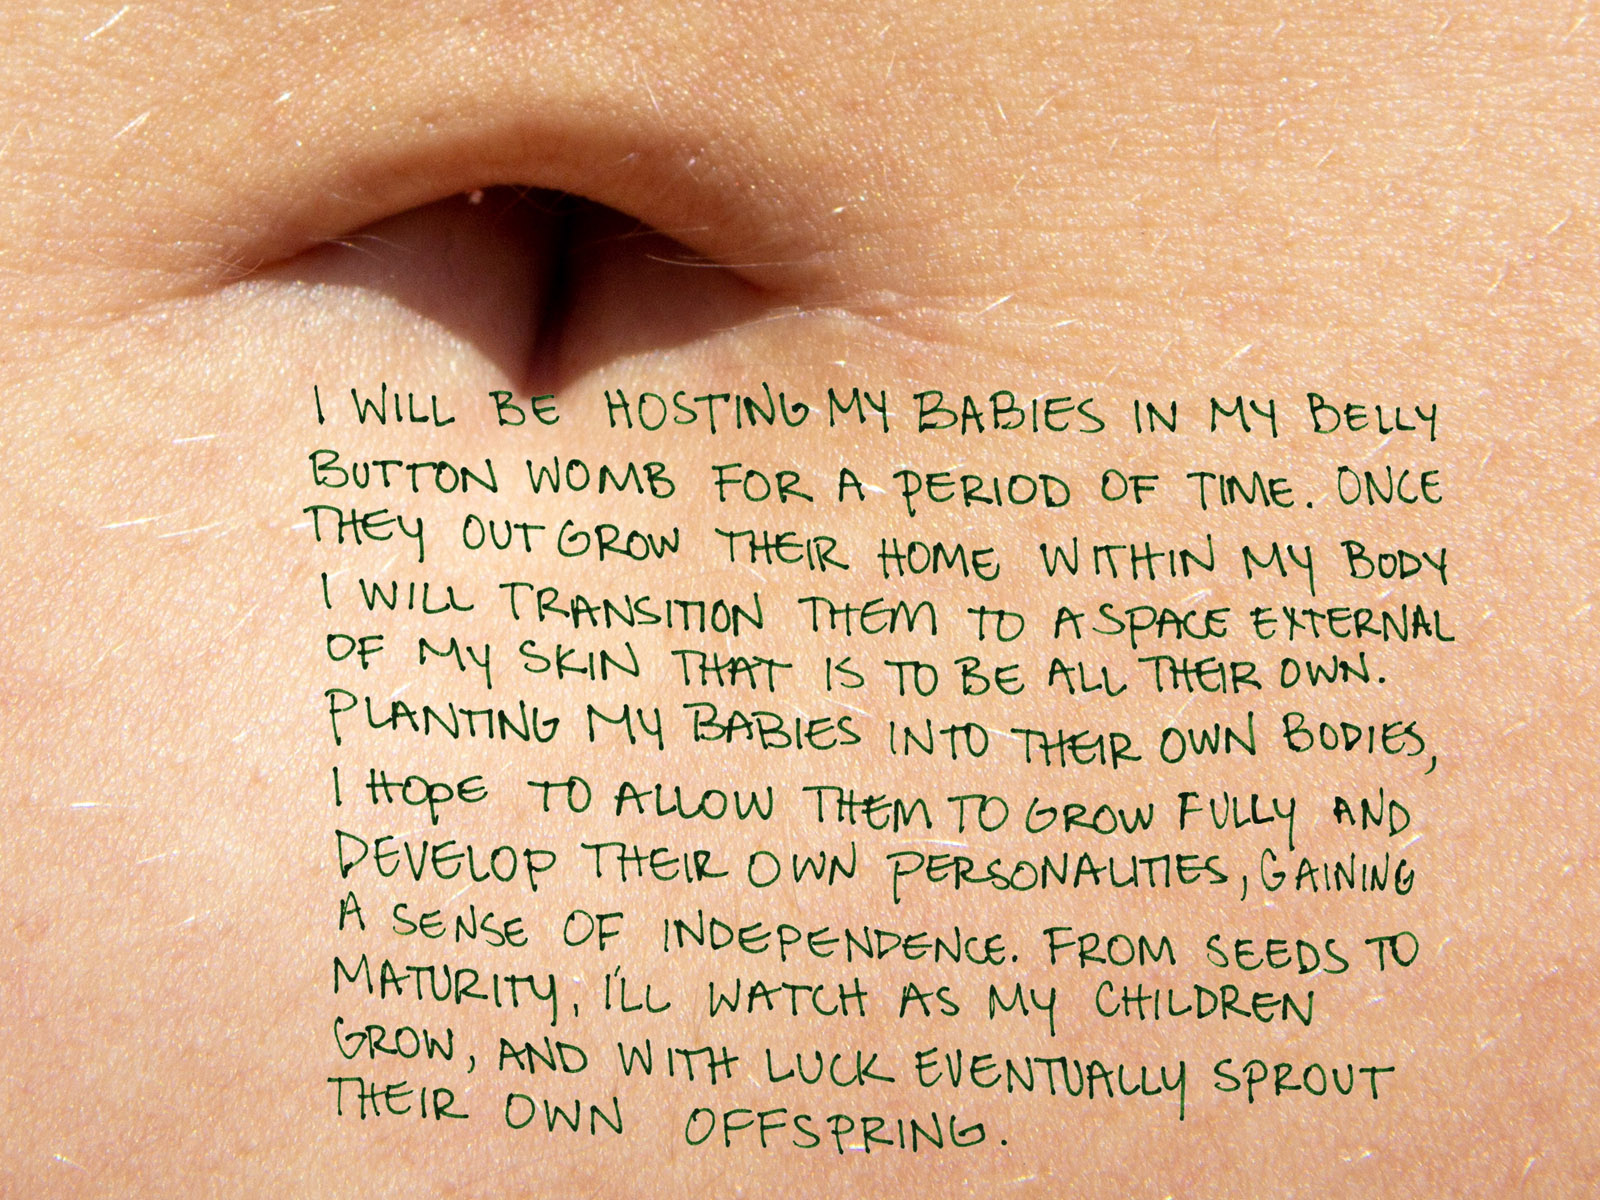 I WILL BE HOSTING MY BABIES IN MY BELLY
BUTTON WOMB FOR A PERIOD OF TIME. ONCE
THEY OUTGROW THEIR HOME WITHIN MY BODY
I WILL TRANSITION THEM TO A SPACE EXTERNAL
OF MY SKIN THAT IS TO BE ALL THEIR OWN.
PLANTING MY BABIES INTO THEIR OWN BODIES,
I HOPE TO ALLOW THEM TO GROW FULLY AND
DEVELOP THEIR OWN PERSONALITIES, GAINING
A SENSE OF INDEPENDENCE. FROM SEEDS TO
MATURITY, I'LL WATCH AS MY CHILDREN
GROW, AND WITH LUCK EVENTUALLY SPROUT
THEIR OWN OFFSPRING.